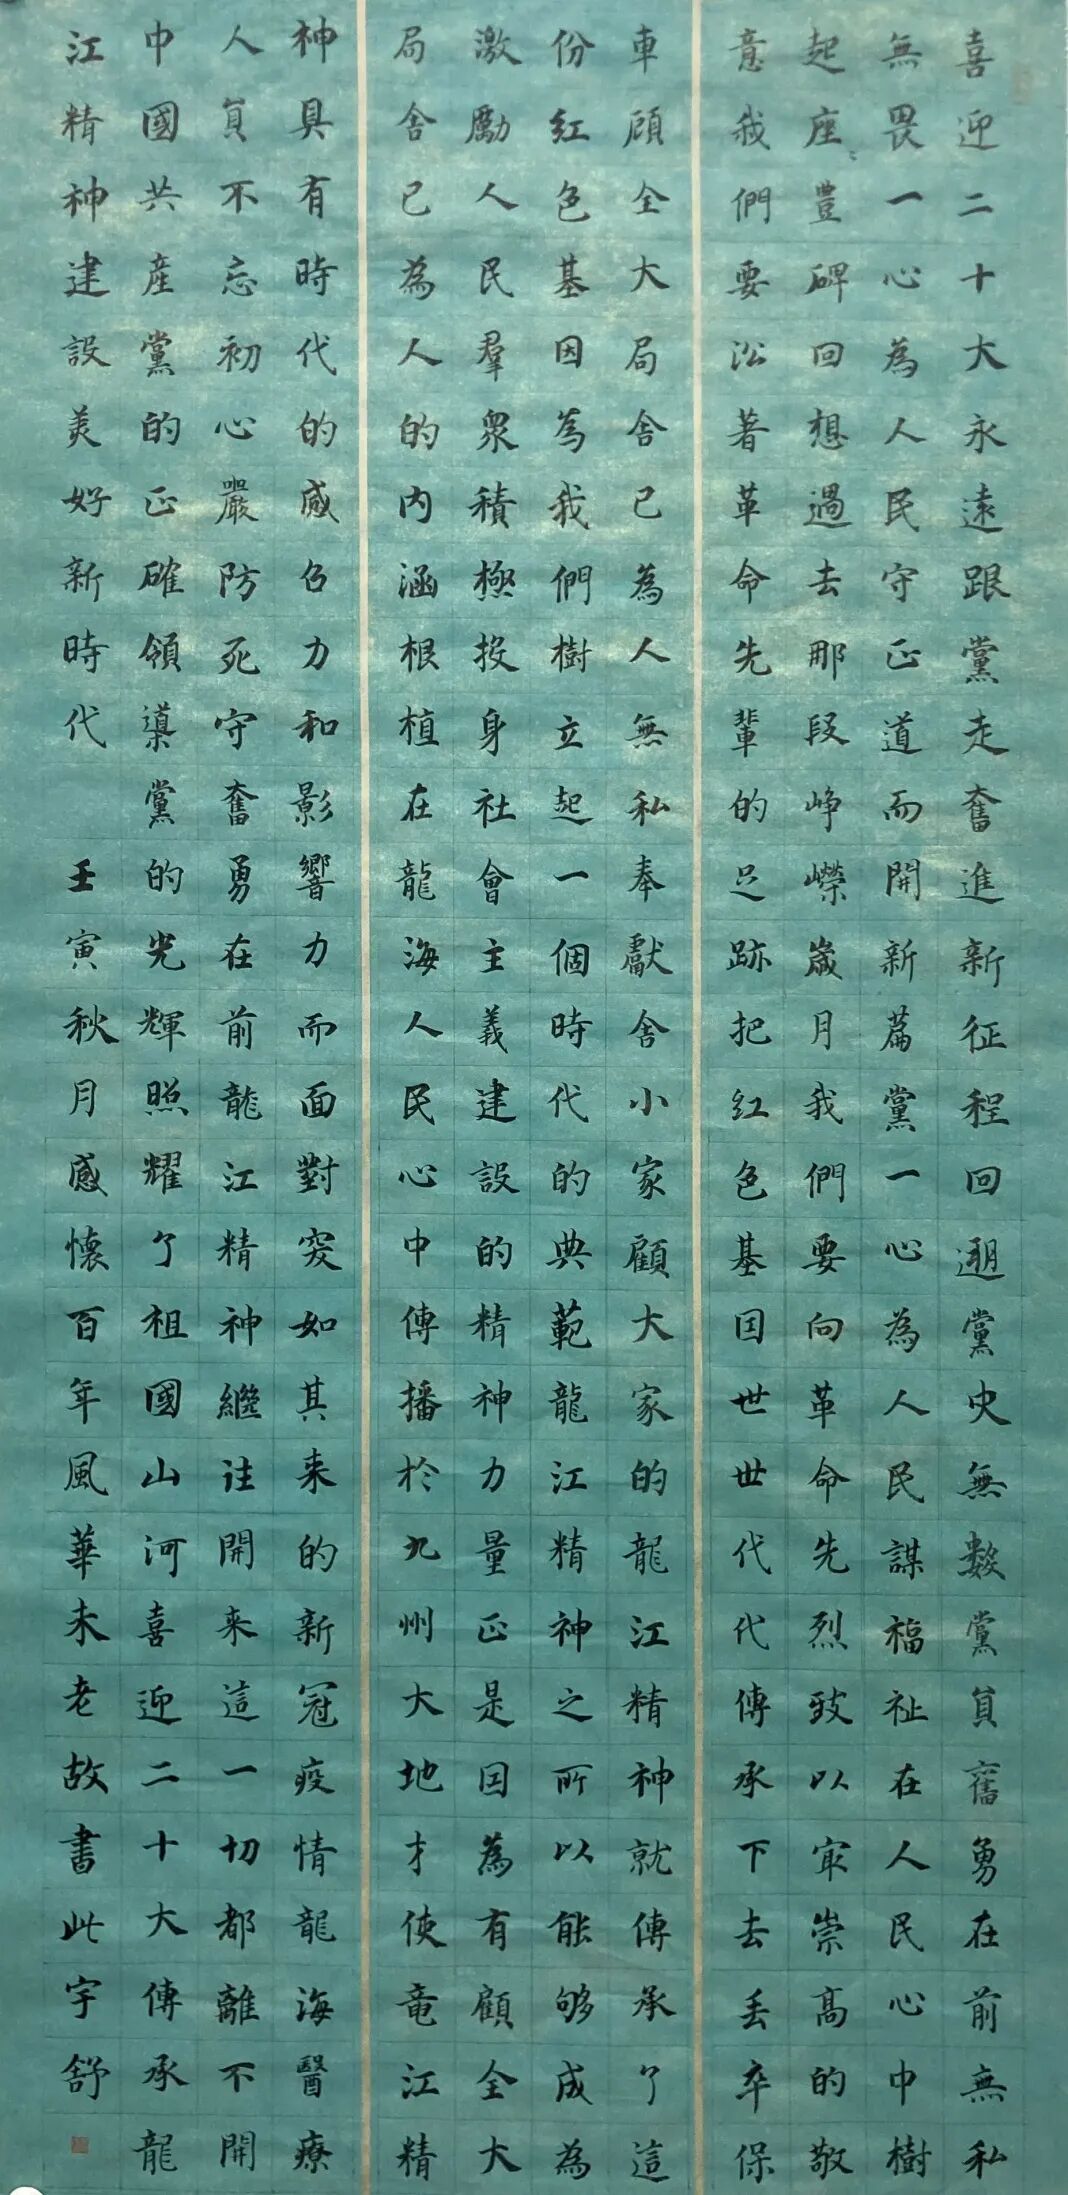 喜迎二十大永遠跟黨走奮進新征程回遡黨史無數黨員奮勇在前無私
無畏一心為人民守正道而開新篇黨一心為人民謀福祉在人民心中樹
起座豐碑回想過去那段崢嶸歲月我們要向革命先烈致以冣崇高的敬
意我們要沿著革命先輩的足跡把紅色基因世世代代傳承下去丢卒保
車顧全大局舍已為人無私奉獻舍小家顧大家的龍江精神就傳承了這
份紅色基因為我們樹立起一個時代的典範龍江精神之所以能够成為
激勵人民羣衆積極投身社會主義建設的精神力量正是因為有顧全大
局舍已為人的内涵根植在龍海人民心中傳播於九州大地才使竜江精
神具有時代的感召力和影響力而面對突如其来的新冠疫情龍海醫療
人員不忘初心嚴防死守奮勇在前龍江精神繼往開来這一切都離不開
中國共產黨的正確領導黨的光輝照耀了祖國山河喜迎二十大傳承龍
江精神建設美好新時代 壬寅秋月感懷百年風華未老故書此宇舒